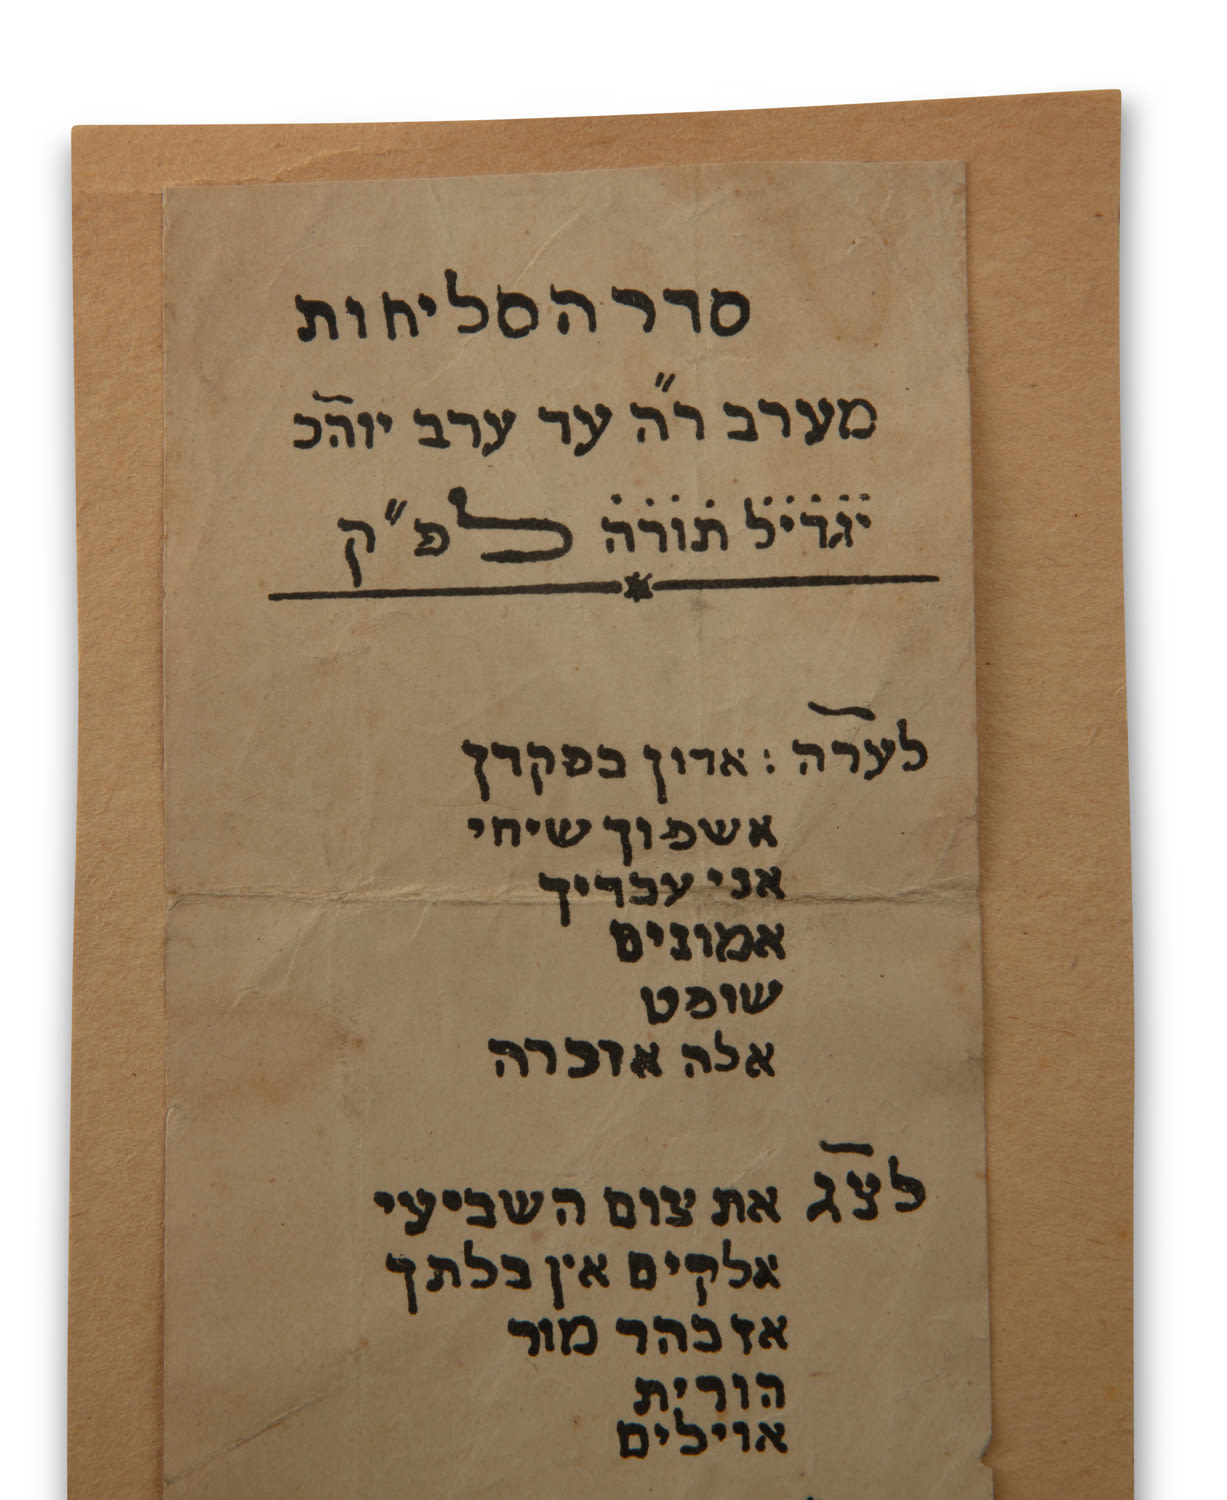 סדר הסליחות
מערב ר"ה עד ערב יוהכ
יגדיל תורה לפ"ק
לערה : אדון בפקדך
אשפוך שיחי
אני עבדיך
אמונים
שופט
אלה אזכרה
לצג את צום השביעי
אלקים אין בלתך
אז בהר מור
הורית
אוילים